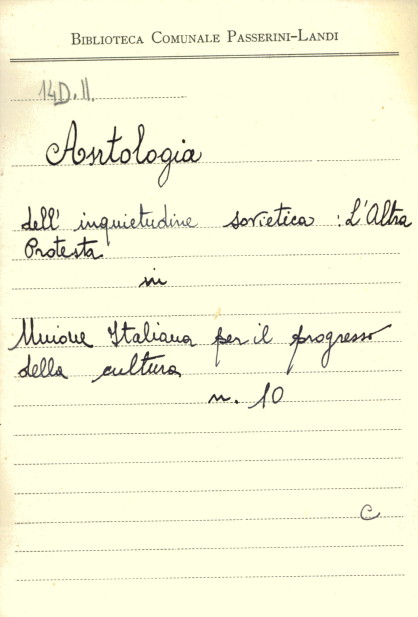 BIBLIOTECA COMUNALE PASSERINI-LANDI
14D.II.
Antologia
dell' inquietudine sovietica : L'Altra
Protesta
in
Unione Italiana per il progresso
della cultura
n. 10
C